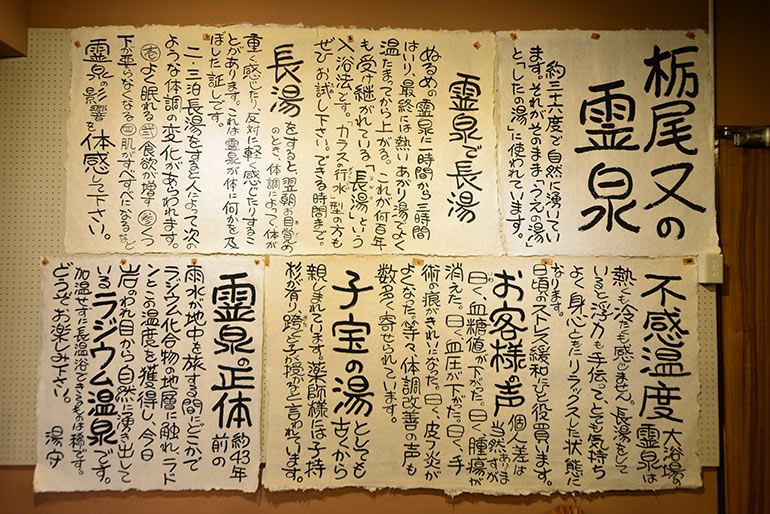 栃尾又の
霊泉
約三十六度で自然に湧いてい
ます。それがそのまま「うえの湯」
と「したの湯」に使われています。
霊泉で長湯
ぬるめの霊泉に一時間から二時間
はいり、最終には熱いあがり湯でよく
温たまってから上がる。これが何百年
も受け継がれている「長湯」という
入浴法です。カラス行水型の方も
ぜひお試し下さい。できる時間まで。
長湯をすると、翌朝お目覚め
のとき、体調によって体が
重く感じたり、反対に軽く感じたりするこ
とがあります。これは霊泉が体に何かを及
ぼした証しです。
二・三泊長湯をすると人によって次の
ような体調の変化があらわれます。
壱よく眠れる 弐食欲が増す 参くつ
下が要らなくなる 四肌がすべすべになるなど
霊泉の影響を体感して下さい。
不感温度
大浴場の
霊泉は
熱くも冷たくも感じません。長湯をして
いると浮力も手伝って、とても気持ち
よく身心ともにリラックスした状態に
なります。
日頃のストレス緩和にも役買います。
お客様の声
個人差は
当然
ありま
すが
曰く、血糖値が下がった。曰く、腫瘍が
消えた。曰く、血圧が下がった。曰く、手
術の痕がきれいになった。曰く、皮フ炎が
よくなった。等々、体調改善の声も
数多く寄せられています。
子宝の湯としても
古くから
親しまれています。薬師様には子持
杉が有り、跨ぐと子を授かると言われています。
霊泉の正体
約43年
前の
雨水が地中を旅する間にどこかで
ラジウム化合物の地層に触れ、ラド
ンとこの温度を獲得し、今日
岩のわれ目から自然に湧き出して
いるラジウム温泉です。
加温せずに長温浴できるものは稀です。
どうぞお楽しみ下さい。 湯守